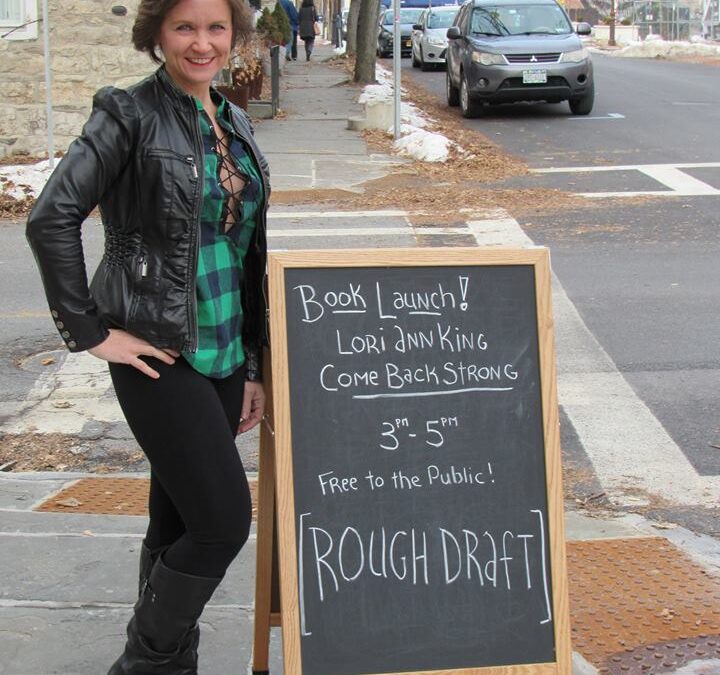 Book Launch!
Lori Ann King
Come Back Strong
3pm - 5pm
Free to the Public!
[ROUGH DRaft]